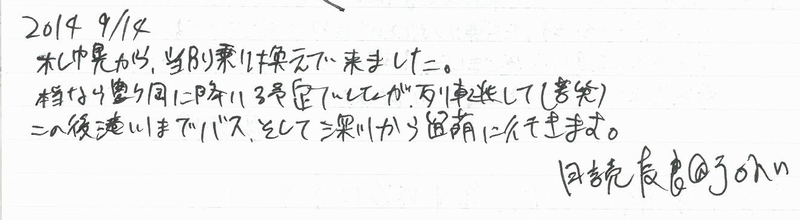 2014 9/14
札幌から、当別乗り換えで来ました。
本当なら豊ヶ岡に降りる予定でしたが、列車逃して(苦笑)
この後滝川までバス、そして深川から留萌に行きます。